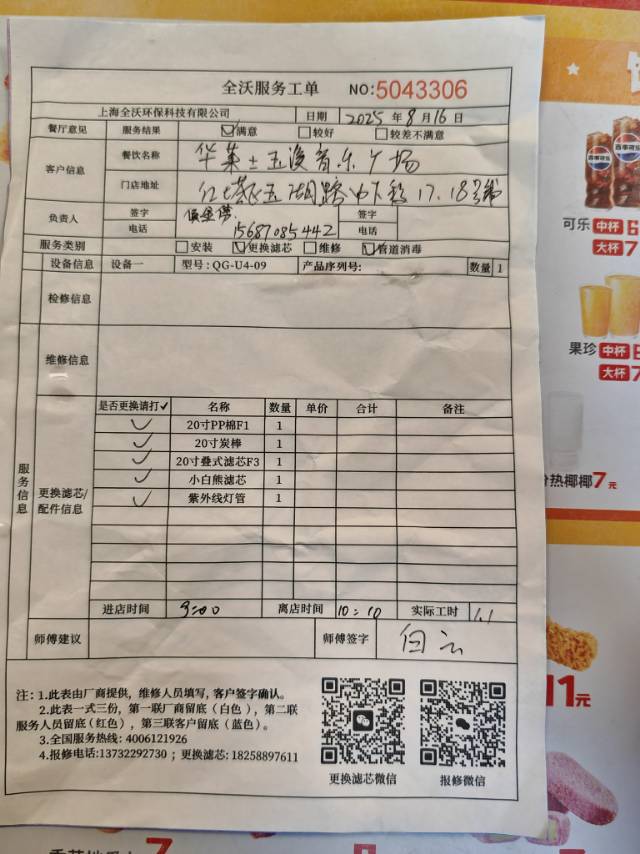 全沃服务工单 NO:5043306
上海全沃环保科技有限公司 日期 2025 年 8 月 16 日
餐厅意见 服务结果 ☑满意 □较好 □较差不满意
客户信息 餐饮名称 华莱士五渡音乐广场
门店地址 17.18号铺
负责人 签字 签字
电话 15687085442 电话
服务类别 □安装 ☑更换滤芯 □维修 ☑管道消毒
服务信息
设备信息 设备一 型号: QG-U4-09 产品序列号: 数量 1
检修信息
维修信息
更换滤芯/配件信息
是否更换请打✓ 名称 数量 单价 合计 备注
✓ 20寸PP棉F1 1
✓ 20寸炭棒 1
✓ 20寸叠式滤芯F3 1
✓ 小白熊滤芯 1
✓ 紫外线灯管 1
进店时间 9:00 离店时间 10:10 实际工时 1.1
师傅建议 师傅签字 白云
注: 1.此表由厂商提供, 维修人员填写, 客户签字确认。
2.此表一式三份, 第一联厂商留底 (白色), 第二联
服务人员留底(红色), 第三联客户留底 (蓝色)。
3.全国服务热线: 4006121926
4.报修电话:13732292730 ; 更换滤芯: 18258897611
更换滤芯微信 报修微信
百事可乐
可乐 中杯 6
大杯 7
果珍 中杯
大杯 7
热椰椰7元
11元